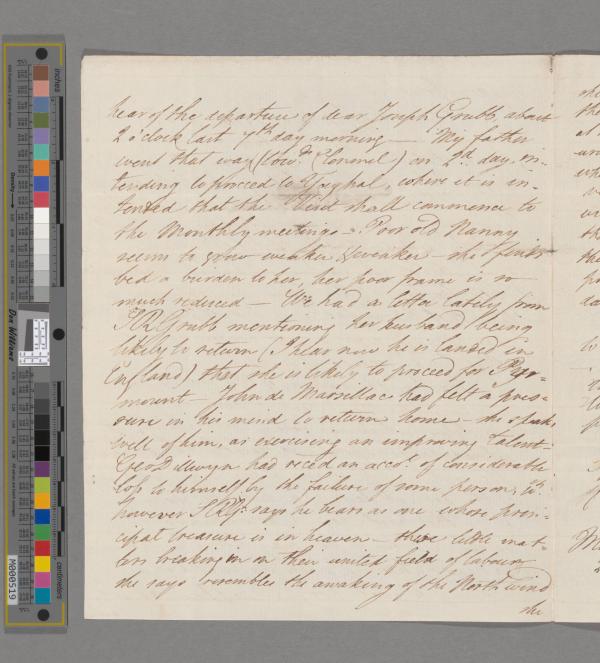 hear of the departure of dear Joseph Grubb, about
2 o'clock last 7th day morning — My father
went that way (towds Clonmel) on 2d day, in-
tending to proceed to Youghal, where it is in-
tended that the Visit shall commence to
the Monthly meetings – Poor old Nanny
seems to grow weaker & weaker – she finds
bed a burden to her, her poor frame is so
much reduced – We had a letter lately from
S R Grubb mentioning her husband being
likely to return (I hear now he is landed in
England) that she is likely to proceed for Pyr-
mount – John de Marsillac had felt a pres-
sure in his mind to return home – she speaks
well of him, as exercising an improving talent –
Geo Dillwyn had reced an acct. of considerable
loss to himself by the failure of some person,
however S R G: says he bears as one whose prin-
cipal treasure is in heaven – these little mat-
ters breaking in on their united field of labour
she says resembles the awaking of the North wind
she
inches
centimetres
Don Williams
M000519